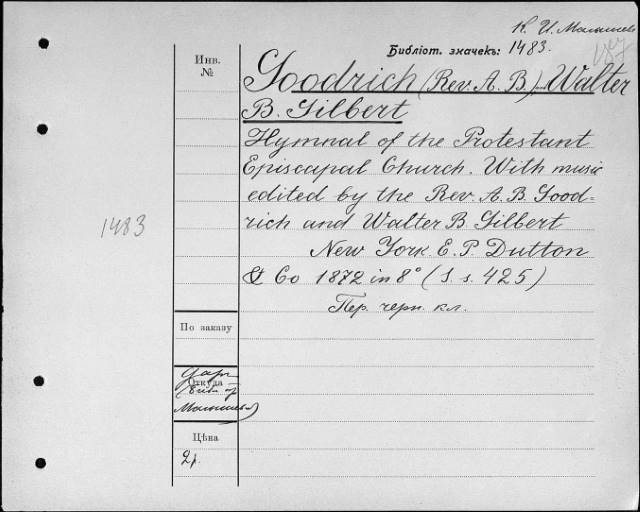 К. И. Малышев
Библіот. значекъ: 1483.
Инв.
№
Goodrich (Rev. A. B.) and Walter
B. Gilbert
Hymnal of the Protestant
Episcapal Church. With music
edited by the Rev. A. B. Good-
rich and Walter B. Gilbert
1483
New York E. P. Dutton
& Co 1872 in 8° (S. s. 425)
Пер. черн. кл.
По заказу
Даръ
Откуда
Малышева)
Цѣна
2 р.